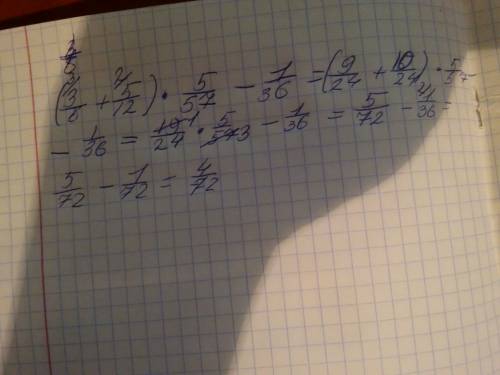 (3/8 + 5/12) · 5/57 − 1/36 = (9/24 + 10/24) · 5/57
− 1/36 = 19/24 · 5/57 3 − 1/36 = 5/72 − 1/36 =
5/72 − 1/72 = 4/72